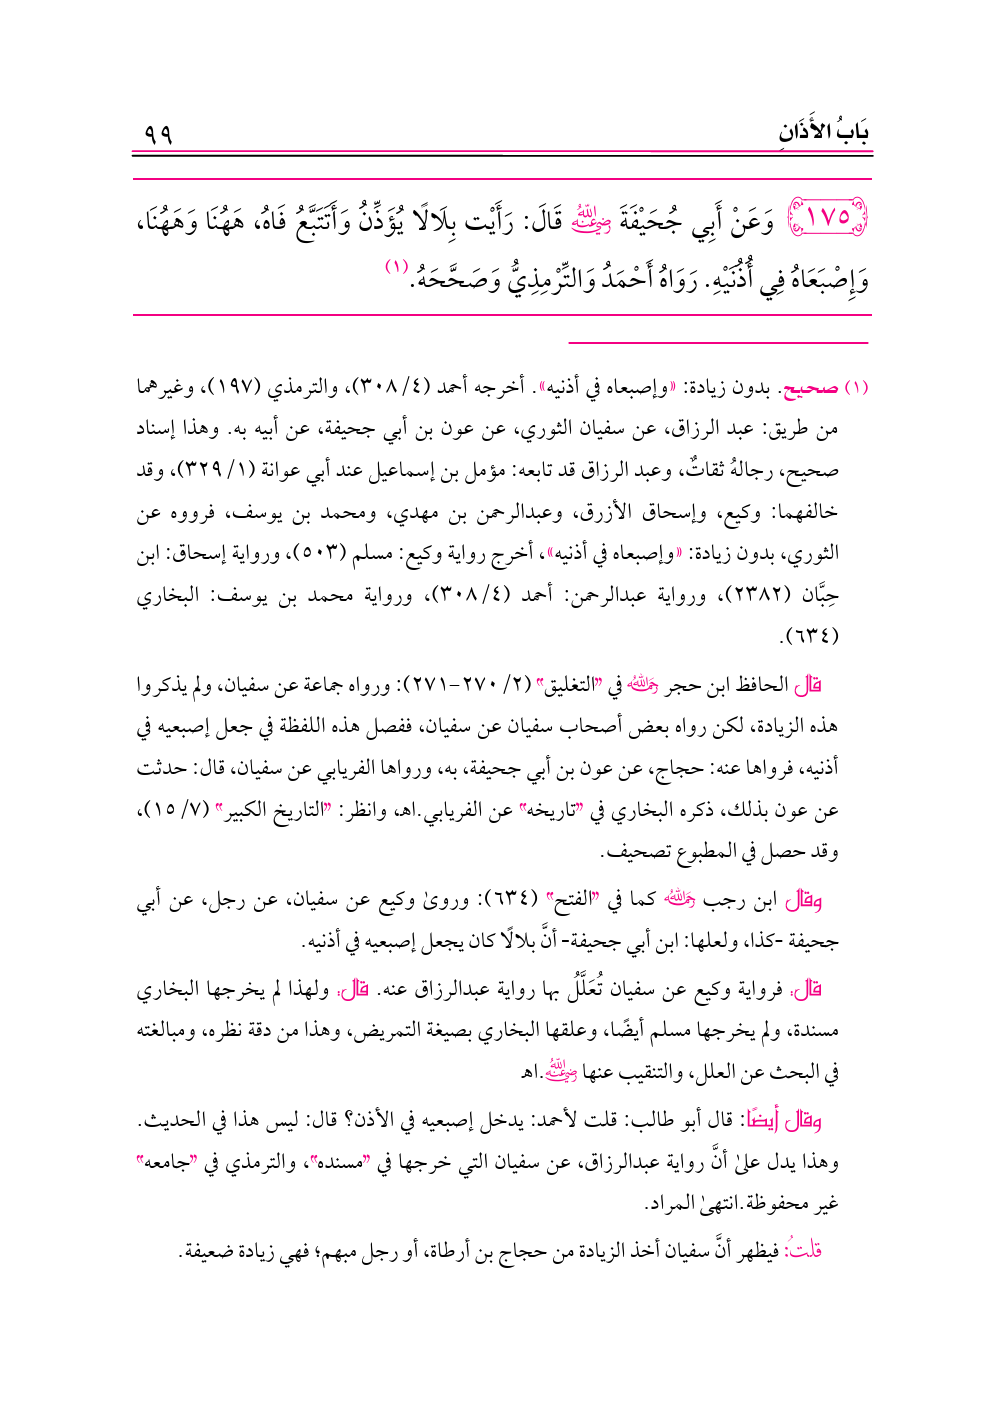 بَابُ الأَذَانِ
٩٩
١٧٥ وَعَنْ أَبِي جُحَيْفَةَ رضي الله عنه قَالَ: رَأَيْت بِلَالًا يُؤَذِّنُ وَأَتَتَبَّعُ فَاهُ، هَهُنَا وَهَهُنَا،
وَإِصْبَعَاهُ فِي أُذُنَيْهِ. رَوَاهُ أَحْمَدُ وَالتِّرْمِذِيُّ وَصَحَّحَهُ.(١)
(١) صحيح. بدون زيادة: «وإصبعاه في أذنيه». أخرجه أحمد (٤/ ٣٠٨)، والترمذي (١٩٧)، وغيرهما
من طريق: عبد الرزاق، عن سفيان الثوري، عن عون بن أبي جحيفة، عن أبيه به. وهذا إسناد
صحيح، رجالهُ ثقاتٌ، وعبد الرزاق قد تابعه: مؤمل بن إسماعيل عند أبي عوانة (١/ ٣٢٩)، وقد
خالفهما: وكيع، وإسحاق الأزرق، وعبدالرحمن بن مهدي، ومحمد بن يوسف، فرووه عن
الثوري، بدون زيادة: «وإصبعاه في أذنيه»، أخرج رواية وكيع: مسلم (٥٠٣)، ورواية إسحاق: ابن
حِبَّان (٢٣٨٢)، ورواية عبدالرحمن: أحمد (٤/ ٣٠٨)، ورواية محمد بن يوسف: البخاري
(٦٣٤).
قال الحافظ ابن حجر رحمه الله في "التغليق" (٢/ ٢٧٠-٢٧١): ورواه جماعة عن سفيان، ولم يذكروا
هذه الزيادة، لكن رواه بعض أصحاب سفيان عن سفيان، ففصل هذه اللفظة في جعل إصبعيه في
أذنيه، فرواها عنه: حجاج، عن عون بن أبي جحيفة، به، ورواها الفريابي عن سفيان، قال: حدثت
عن عون بذلك، ذكره البخاري في "تاريخه" عن الفريابي.اهـ، وانظر: "التاريخ الكبير" (٧/ ١٥)،
وقد حصل في المطبوع تصحيف.
وقال ابن رجب رحمه الله كما في "الفتح" (٦٣٤): وروىٰ وكيع عن سفيان، عن رجل، عن أبي
جحيفة -كذا، ولعلها: ابن أبي جحيفة- أنَّ بلالًا كان يجعل إصبعيه في أذنيه.
قال: فرواية وكيع عن سفيان تُعَلَّلُ بها رواية عبدالرزاق عنه. قال: ولهذا لم يخرجها البخاري
مسندة، ولم يخرجها مسلم أيضًا، وعلقها البخاري بصيغة التمريض، وهذا من دقة نظره، ومبالغته
في البحث عن العلل، والتنقيب عنها رضي الله عنه.اهـ
وقال أيضًا: قال أبو طالب: قلت لأحمد: يدخل إصبعيه في الأذن؟ قال: ليس هذا في الحديث.
وهذا يدل علىٰ أنَّ رواية عبدالرزاق، عن سفيان التي خرجها في "مسنده"، والترمذي في "جامعه"
غير محفوظة.انتهىٰ المراد.
قلتُ: فيظهر أنَّ سفيان أخذ الزيادة من حجاج بن أرطاة، أو رجل مبهم؛ فهي زيادة ضعيفة.